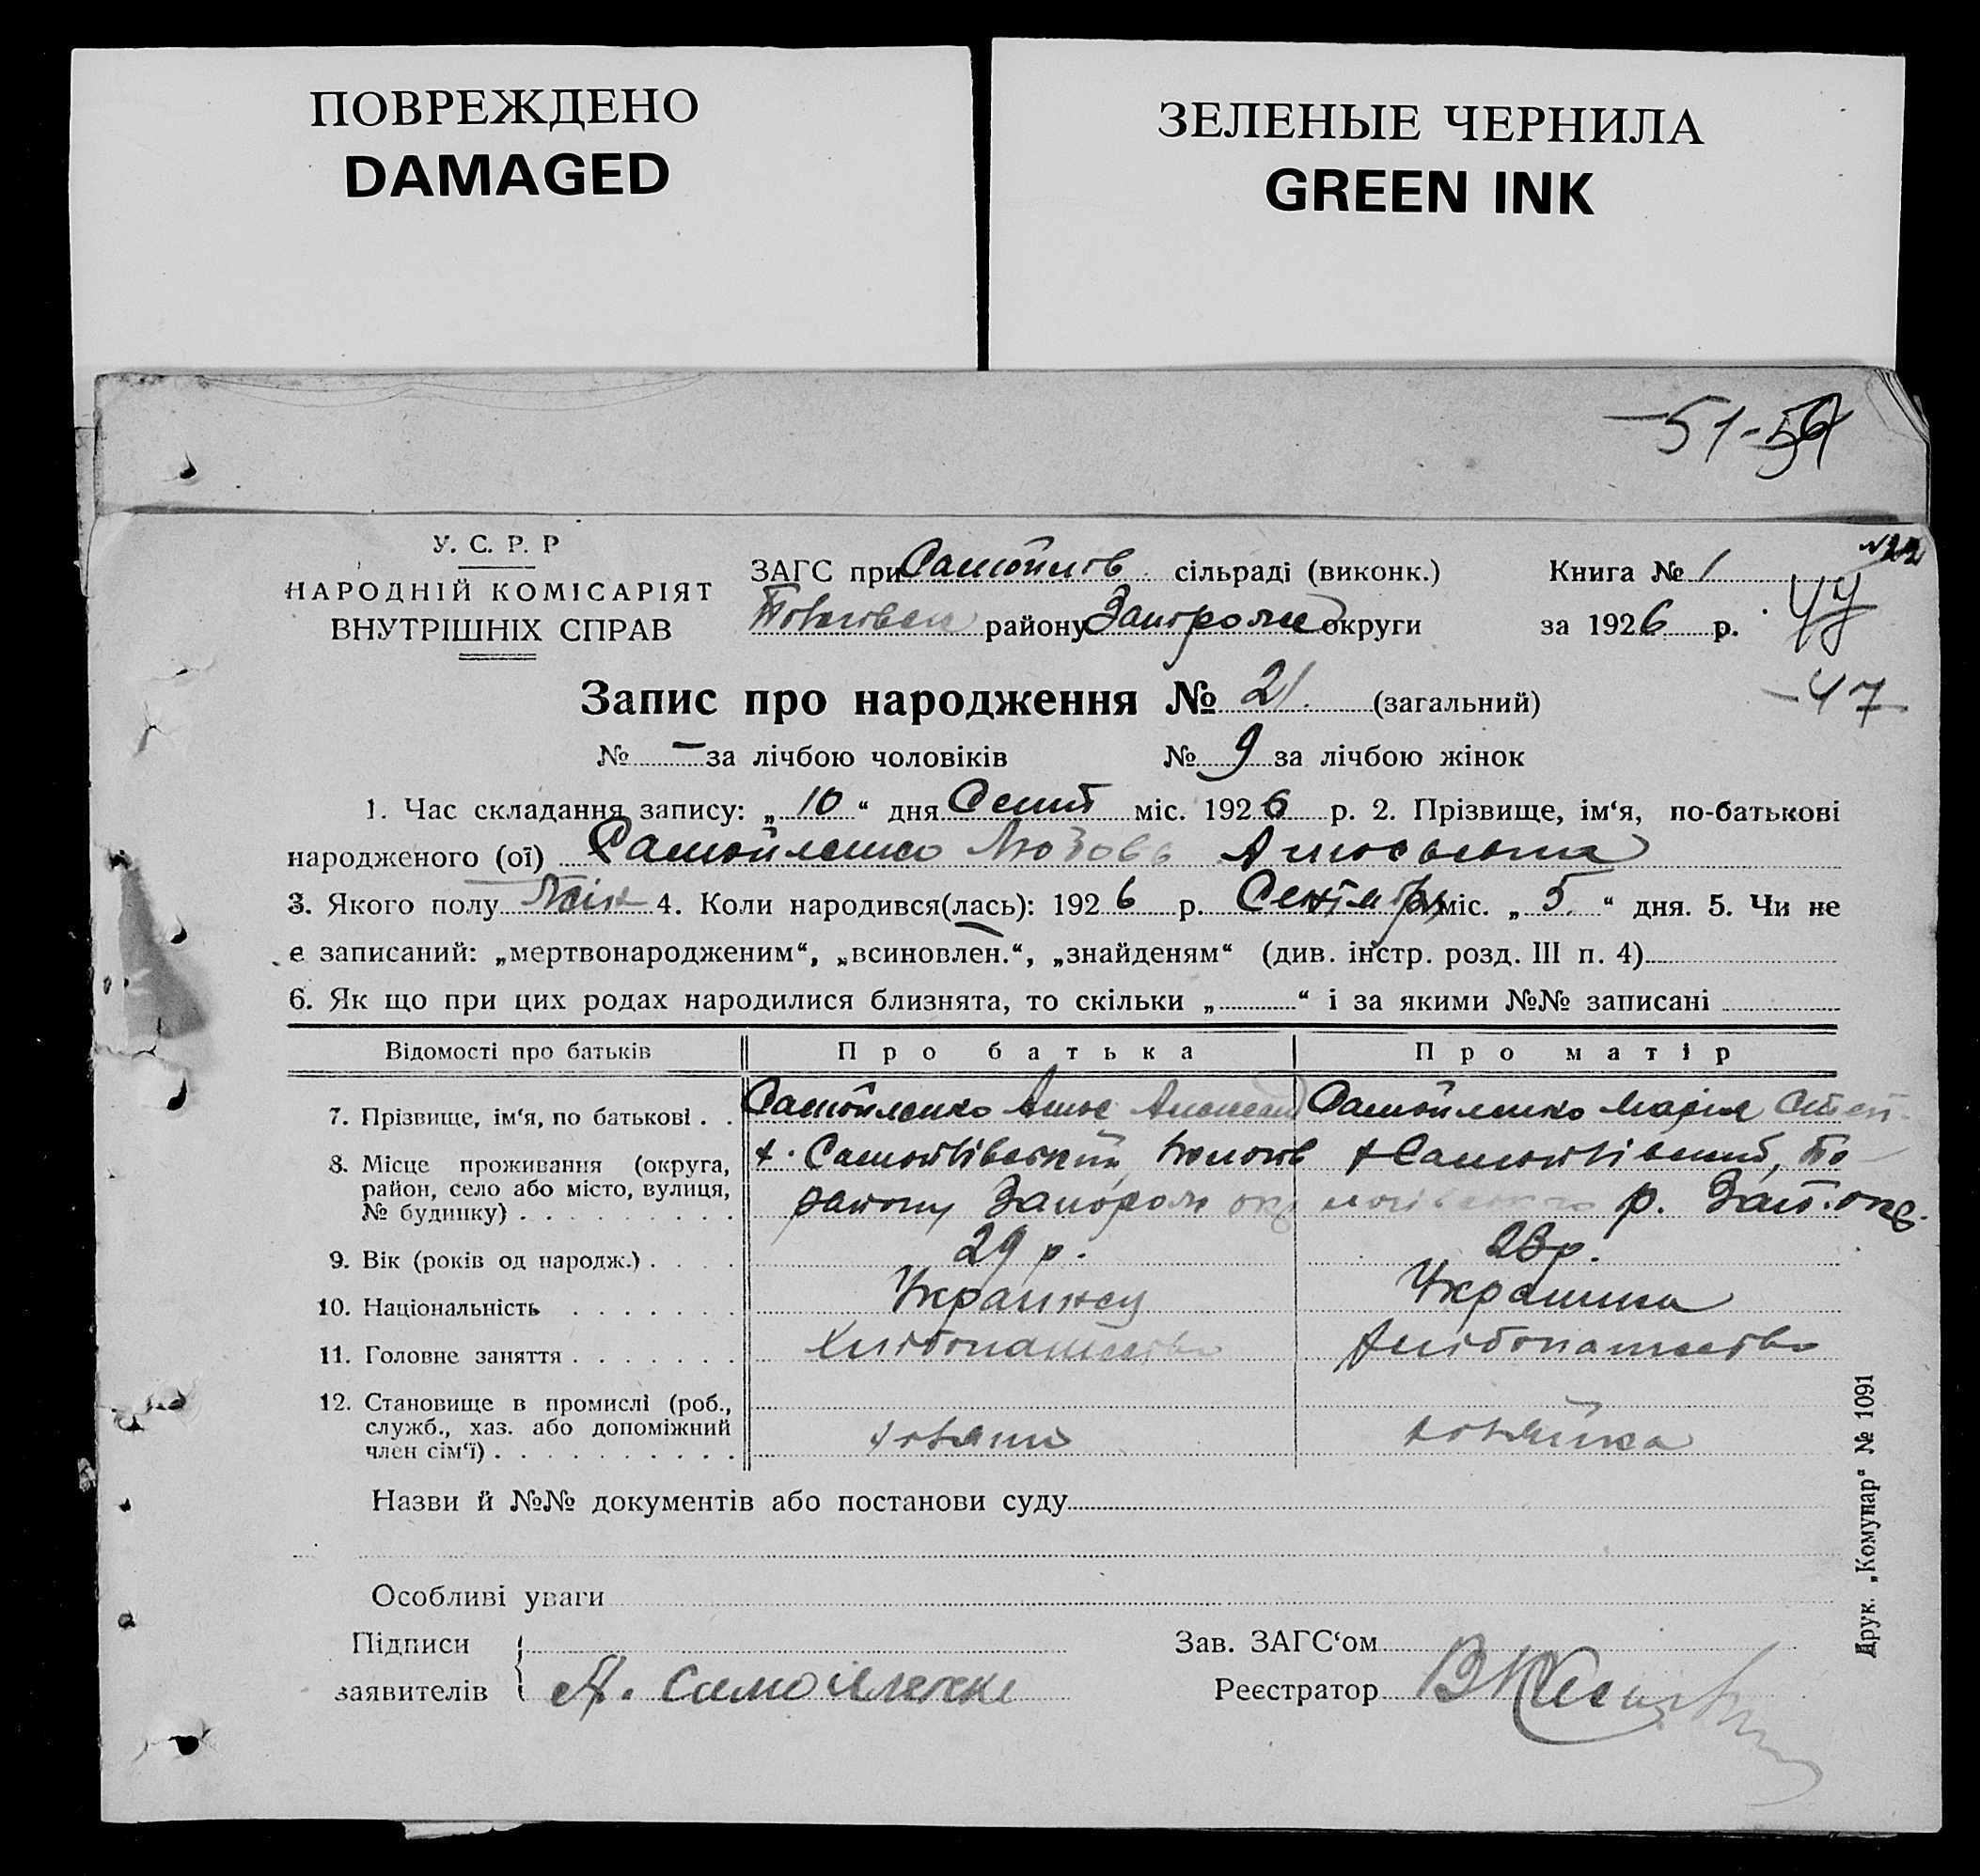 ПОВРЕЖДЕНО
DAMAGED
ЗЕЛЕНЫЕ ЧЕРНИЛА
GREEN INK
51-
У. С. Р. Р
НАРОДНІЙ КОМІСАРІЯТ
ВНУТРІШНІХ СПРАВ
ЗАГС при Самойлов сільраді (виконк.)
району Запорожс округи
Книга № 1
за 1926 р.
47
Запис про народження № 21. (загальний)
№ — за лічбою чоловіків № 9 за лічбою жінок
1. Час складання запису: „ 10 “ дня Сент міс. 1926 р. 2. Прізвище, ім‘я, по-батькові
народженого (ої) Самойленко Любовь Амосовна
3. Якого полу 4. Коли народився(лась): 1926 р. Сентября міс. „ 5. “ дня. 5. Чи не
е записаний: „мертвонародженим“, „всиновлен.“, „знайденям“ (див. інстр. розд. III п. 4)
6. Як що при цих родах народилися близнята, то скільки „ “ і за якими №№ записані
Відомості про батьків Про батька Про матір
7. Прізвище, ім‘я, по батькові . . Самойленко Амос Самойленко Мария Степ
8. Місце проживання (округа, район, село або місто, вулиця, № будинку) . . . . . . . . .
х. району Запорож окр
р. Зап. окр.
9. Вік (років од народж.) . . . . 29 р. 23 р.
10. Національність . . . . . . Украинец Украинка
11. Головне заняття . . . . . . . Хлібопашество Хлібопашество
12. Становище в промислі (роб., служб., хаз. або допоміжний член сім‘ї) . . . . . . . . . .
хозяин хозяйка
Назви й №№ документів або постанови суду
Особливі уваги
Підписи
заявителів А. Самойленко
Зав. ЗАГС‘ом
Реєстратор
Друк. „Комунар“ № 1091